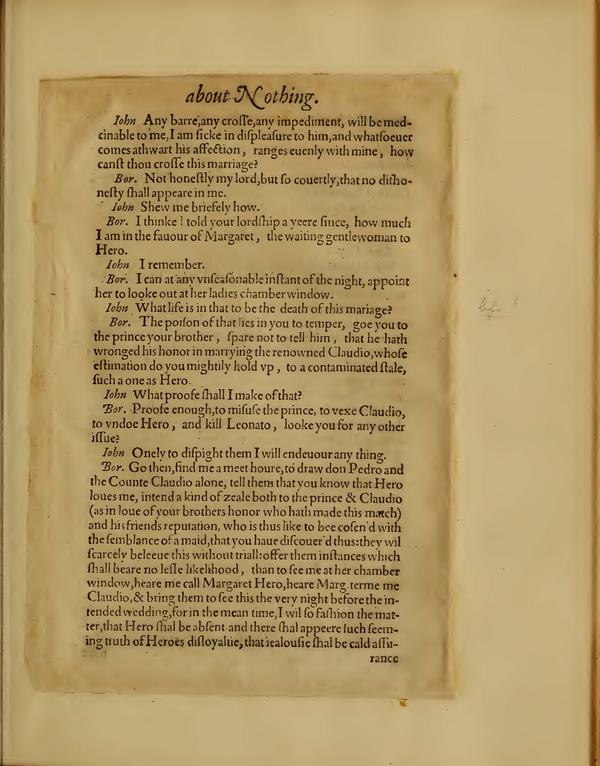 about Nothing.
Iohn Any barre, any croſſe, any impediment, will be med-
cinable to me, I am ſicke in diſpleaſure to him, and whatſoeuer
comes athwart his affection, ranges euenly with mine, how
canſt thou croſſe this marriage?
Bor. Not honeſtly my lord, but ſo couertly, that no diſho-
neſty ſhall appeare in me.
Iohn Shew me briefely how.
Bor. I thinke I told your lordſhip a yeere ſince, how much
I am in the fauour of Margaret, the waiting gentlewoman to
Hero.
Iohn I remember.
Bor. I can at any vnſeaſonable inſtant of the night, appoint
her to looke out at her ladies chamber window.
Iohn What life is in that to be the death of this mariage?
Bor. The poiſon of that lies in you to temper, goe you to
the prince your brother, ſpare not to tell him, that he hath
wronged his honor in marrying the renowned Claudio, whoſe
eſtimation do you mightily hold vp, to a contaminated ſtale,
ſuch a one as Hero.
Iohn What proofe ſhall I make of that?
Bor. Proofe enough, to miſuſe the prince, to vexe Claudio,
to vndoe Hero, and kill Leonato, looke you for any other
iſſue?
Iohn Onely to diſpight them I will endeuour any thing.
Bor. Go then, find me a meet houre, to draw don Pedro and
the Counte Claudio alone, tell them that you know that Hero
loues me, intend a kind of zeale both to the prince & Claudio
(as in loue of your brothers honor who hath made this match)
and his friends reputation, who is thus like to bee coſen'd with
the ſemblance of a maid, that you haue diſcouer'd thus: they wil
ſcarcely beleeue this without triall: offer them inſtances which
ſhall beare no leſſe likelihood, than to ſee me at her chamber
window, heare me call Margaret Hero, heare Marg. terme me
Claudio, & bring them to ſee this the very night before the in-
tended wedding, for in the mean time, I wil ſo faſhion the mat-
ter, that Hero ſhal be abſent, and there ſhal appeere ſuch ſeem-
ing truth of Heroes diſloyaltie, that iealouſie ſhal be cald aſſu-
rance